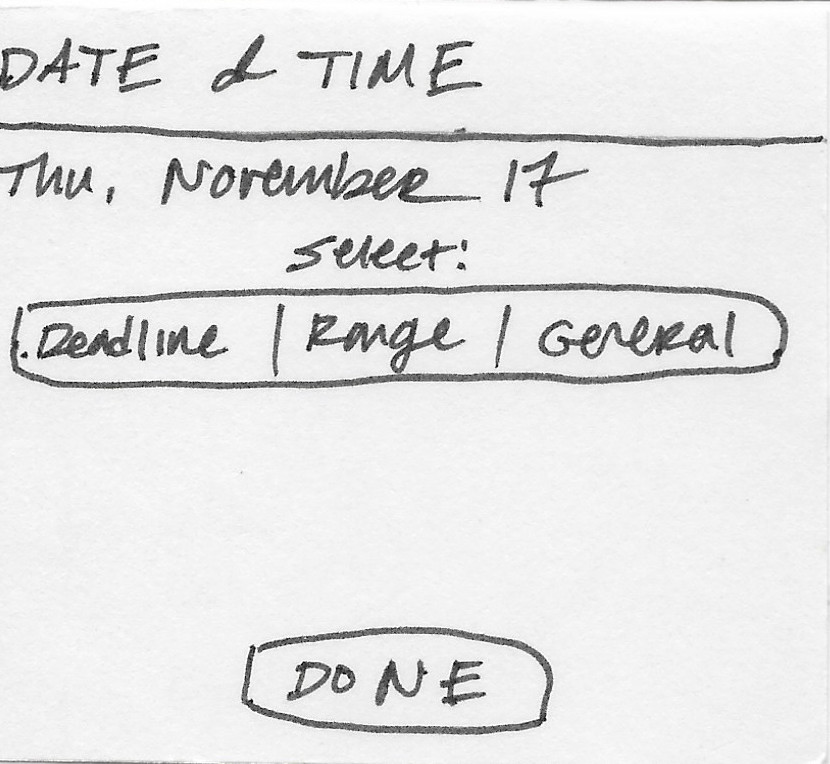 DATE & TIME
Thu, November 17
select:
Deadline | Range | General
DONE